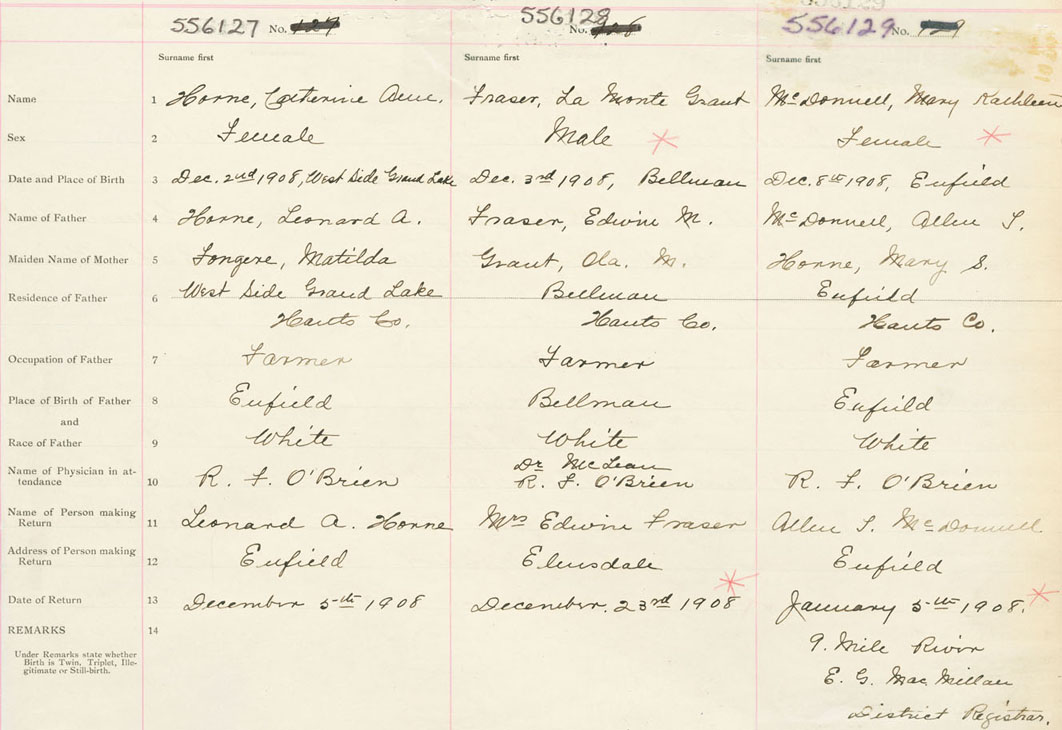 556127 No. 556128 No. 556129 No.
Surname first Surname first Surname first
Name 1 Horne, Catherine Fraser, La Monte Grant McDonnell, Mary Kathleen
Sex 2 Female Male Female
Date and Place of Birth 3 Dec. 2nd 1908, West Side Grand Lake Dec. 3rd 1908, Bellman Dec. 8th 1908, Enfield
Name of Father 4 Horne, Leonard A. Fraser, Edwin M. McDonnell, Allen
Maiden Name of Mother 5 Matilda Grant, Ola. M. Horne, Mary S.
Residence of Father 6 West Side Grand Lake Bellman Enfield
Hants Co. Hants Co. Hants Co.
Occupation of Father 7 Farmer Farmer Farmer
Place of Birth of Father 8 Enfield Bellman Enfield
and
Race of Father 9 White White White
Dr McLean
Name of Physician in at-
tendance 10 R. F. O'Brien R. F. O'Brien R. F. O'Brien
Name of Person making
Return 11 Leonard A. Horne Mrs Edwin Fraser Allen McDonnell
Address of Person making
Return 12 Enfield Elmsdale Enfield
Date of Return 13 December 5th 1908 December. 23rd 1908 January 5th 1908.
REMARKS 14
9. Mile River
Under Remarks state whether
Birth is Twin, Triplet, Ille-
gitimate or Still-birth.
E. G. MacMillan
District Registrar.